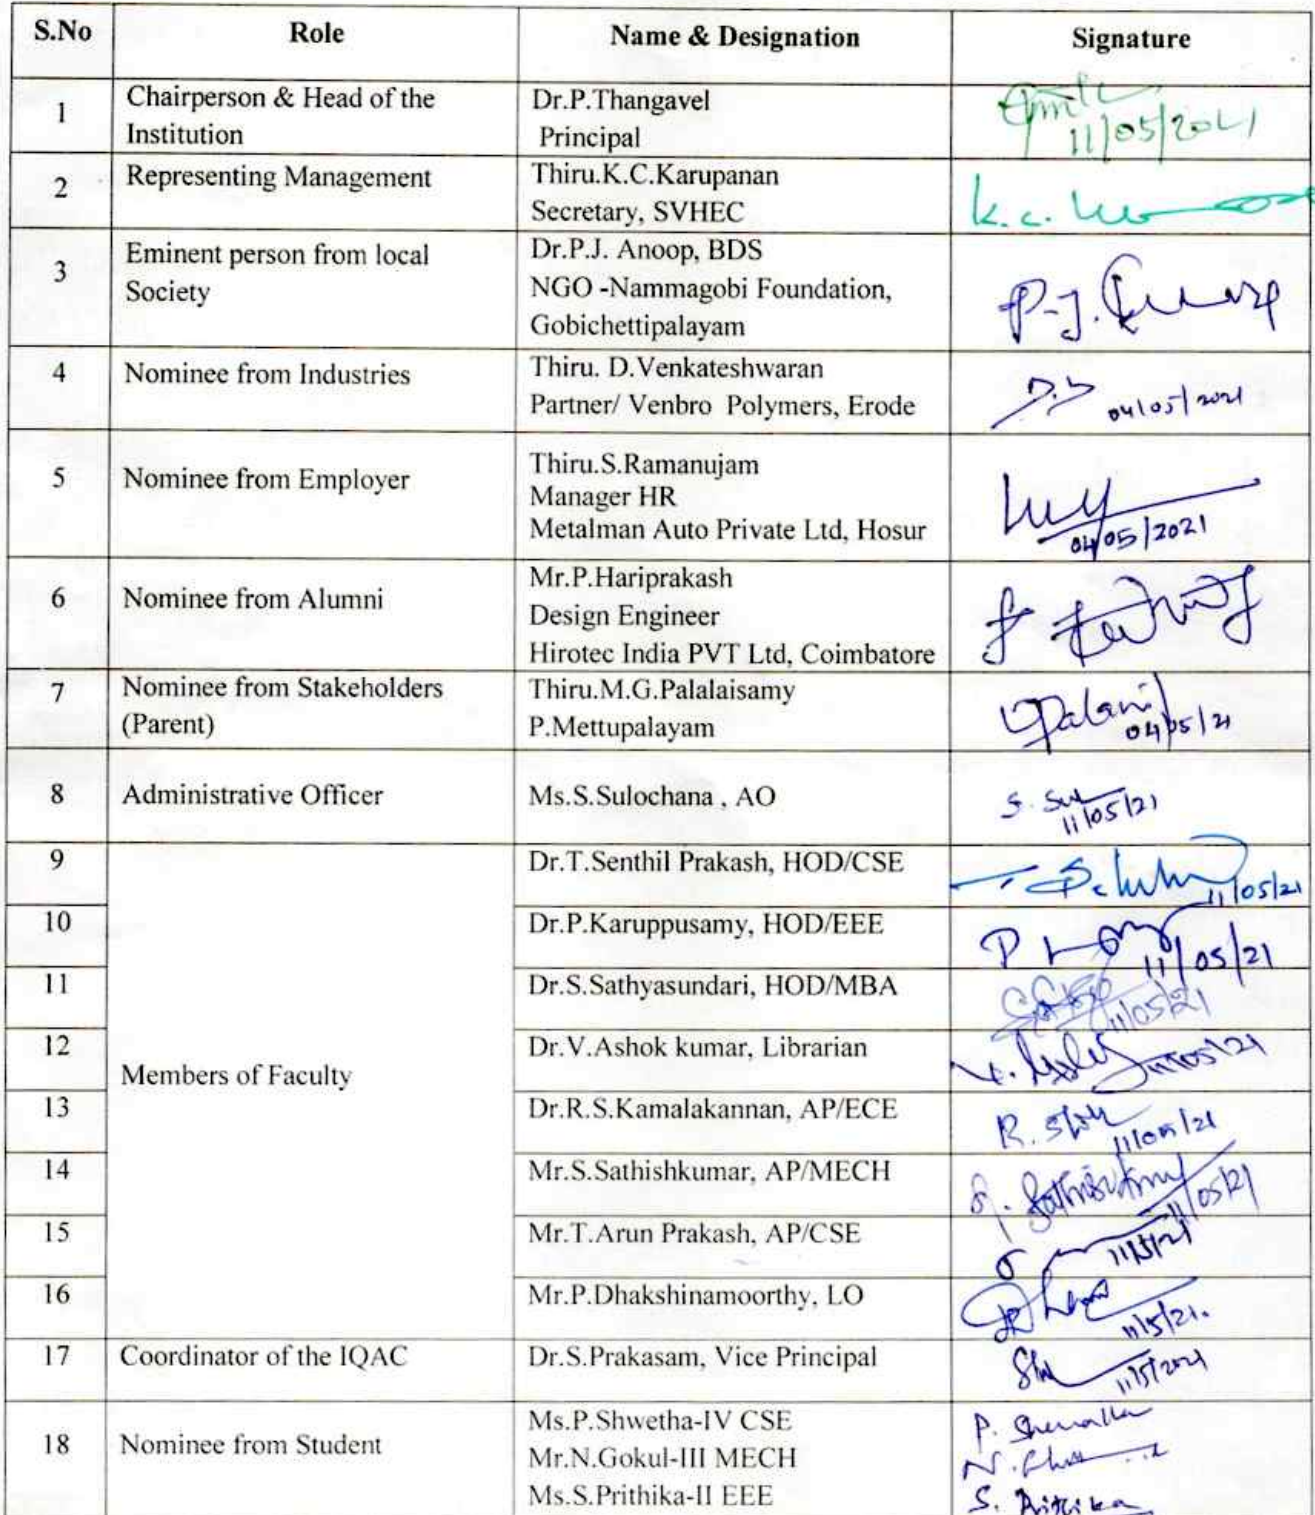 S.No Role Name & Designation Signature
1 Chairperson & Head of the Institution Dr.P.Thangavel
Principal 11/05/2021
2 Representing Management Thiru.K.C.Karupanan
Secretary, SVHEC K.C.
3 Eminent person from local Society Dr.P.J. Anoop, BDS
NGO -Nammagobi Foundation,
Gobichettipalayam P.J.
4 Nominee from Industries Thiru. D.Venkateshwaran
Partner/ Venbro Polymers, Erode 04/05/2021
5 Nominee from Employer Thiru.S.Ramanujam
Manager HR
Metalman Auto Private Ltd, Hosur 04/05/2021
6 Nominee from Alumni Mr.P.Hariprakash
Design Engineer
Hirotec India PVT Ltd, Coimbatore
7 Nominee from Stakeholders (Parent) Thiru.M.G.Palalaisamy
P.Mettupalayam 04/05/21
8 Administrative Officer Ms.S.Sulochana , AO 11/05/21
9 Dr.T.Senthil Prakash, HOD/CSE 11/05/21
10 Dr.P.Karuppusamy, HOD/EEE 11/05/21
11 Dr.S.Sathyasundari, HOD/MBA 11/05/21
12 Dr.V.Ashok kumar, Librarian 11/05/21
Members of Faculty
13 Dr.R.S.Kamalakannan, AP/ECE 11/05/21
14 Mr.S.Sathishkumar, AP/MECH 11/05/21
15 Mr.T.Arun Prakash, AP/CSE 11/5/21
16 Mr.P.Dhakshinamoorthy, LO 11/5/21.
17 Coordinator of the IQAC Dr.S.Prakasam, Vice Principal 11/5/2021
18 Nominee from Student Ms.P.Shwetha-IV CSE P.
Mr.N.Gokul-III MECH N.
Ms.S.Prithika-II EEE S. Prithika